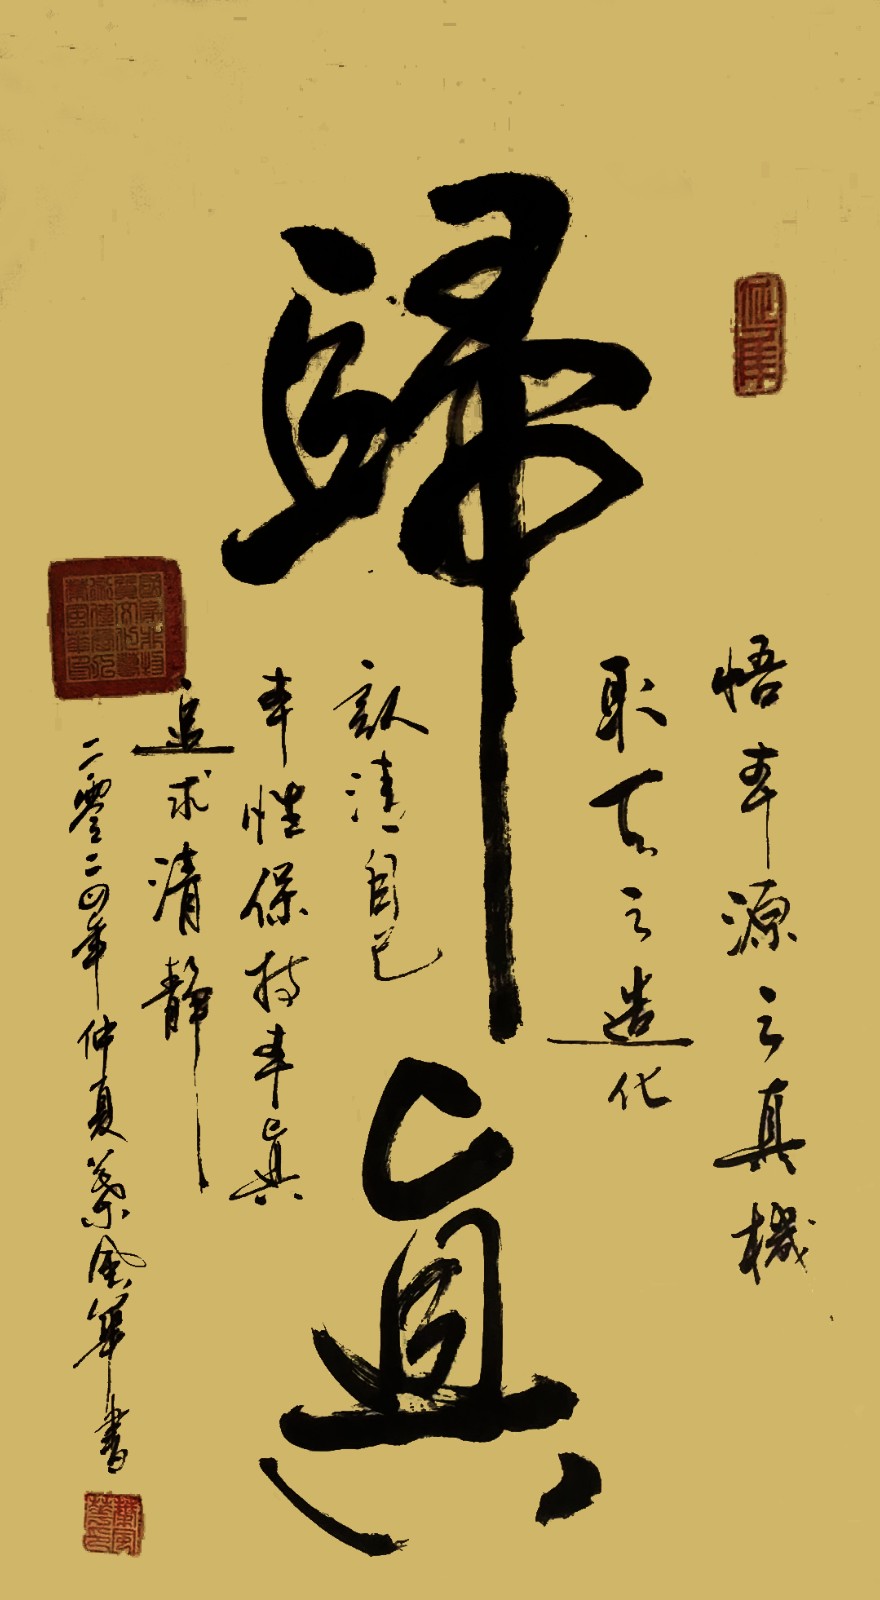 歸真
悟本源之真機
取天之造化
認清自己
本性保持本真
追求清静
二零二四年仲夏葉金華書